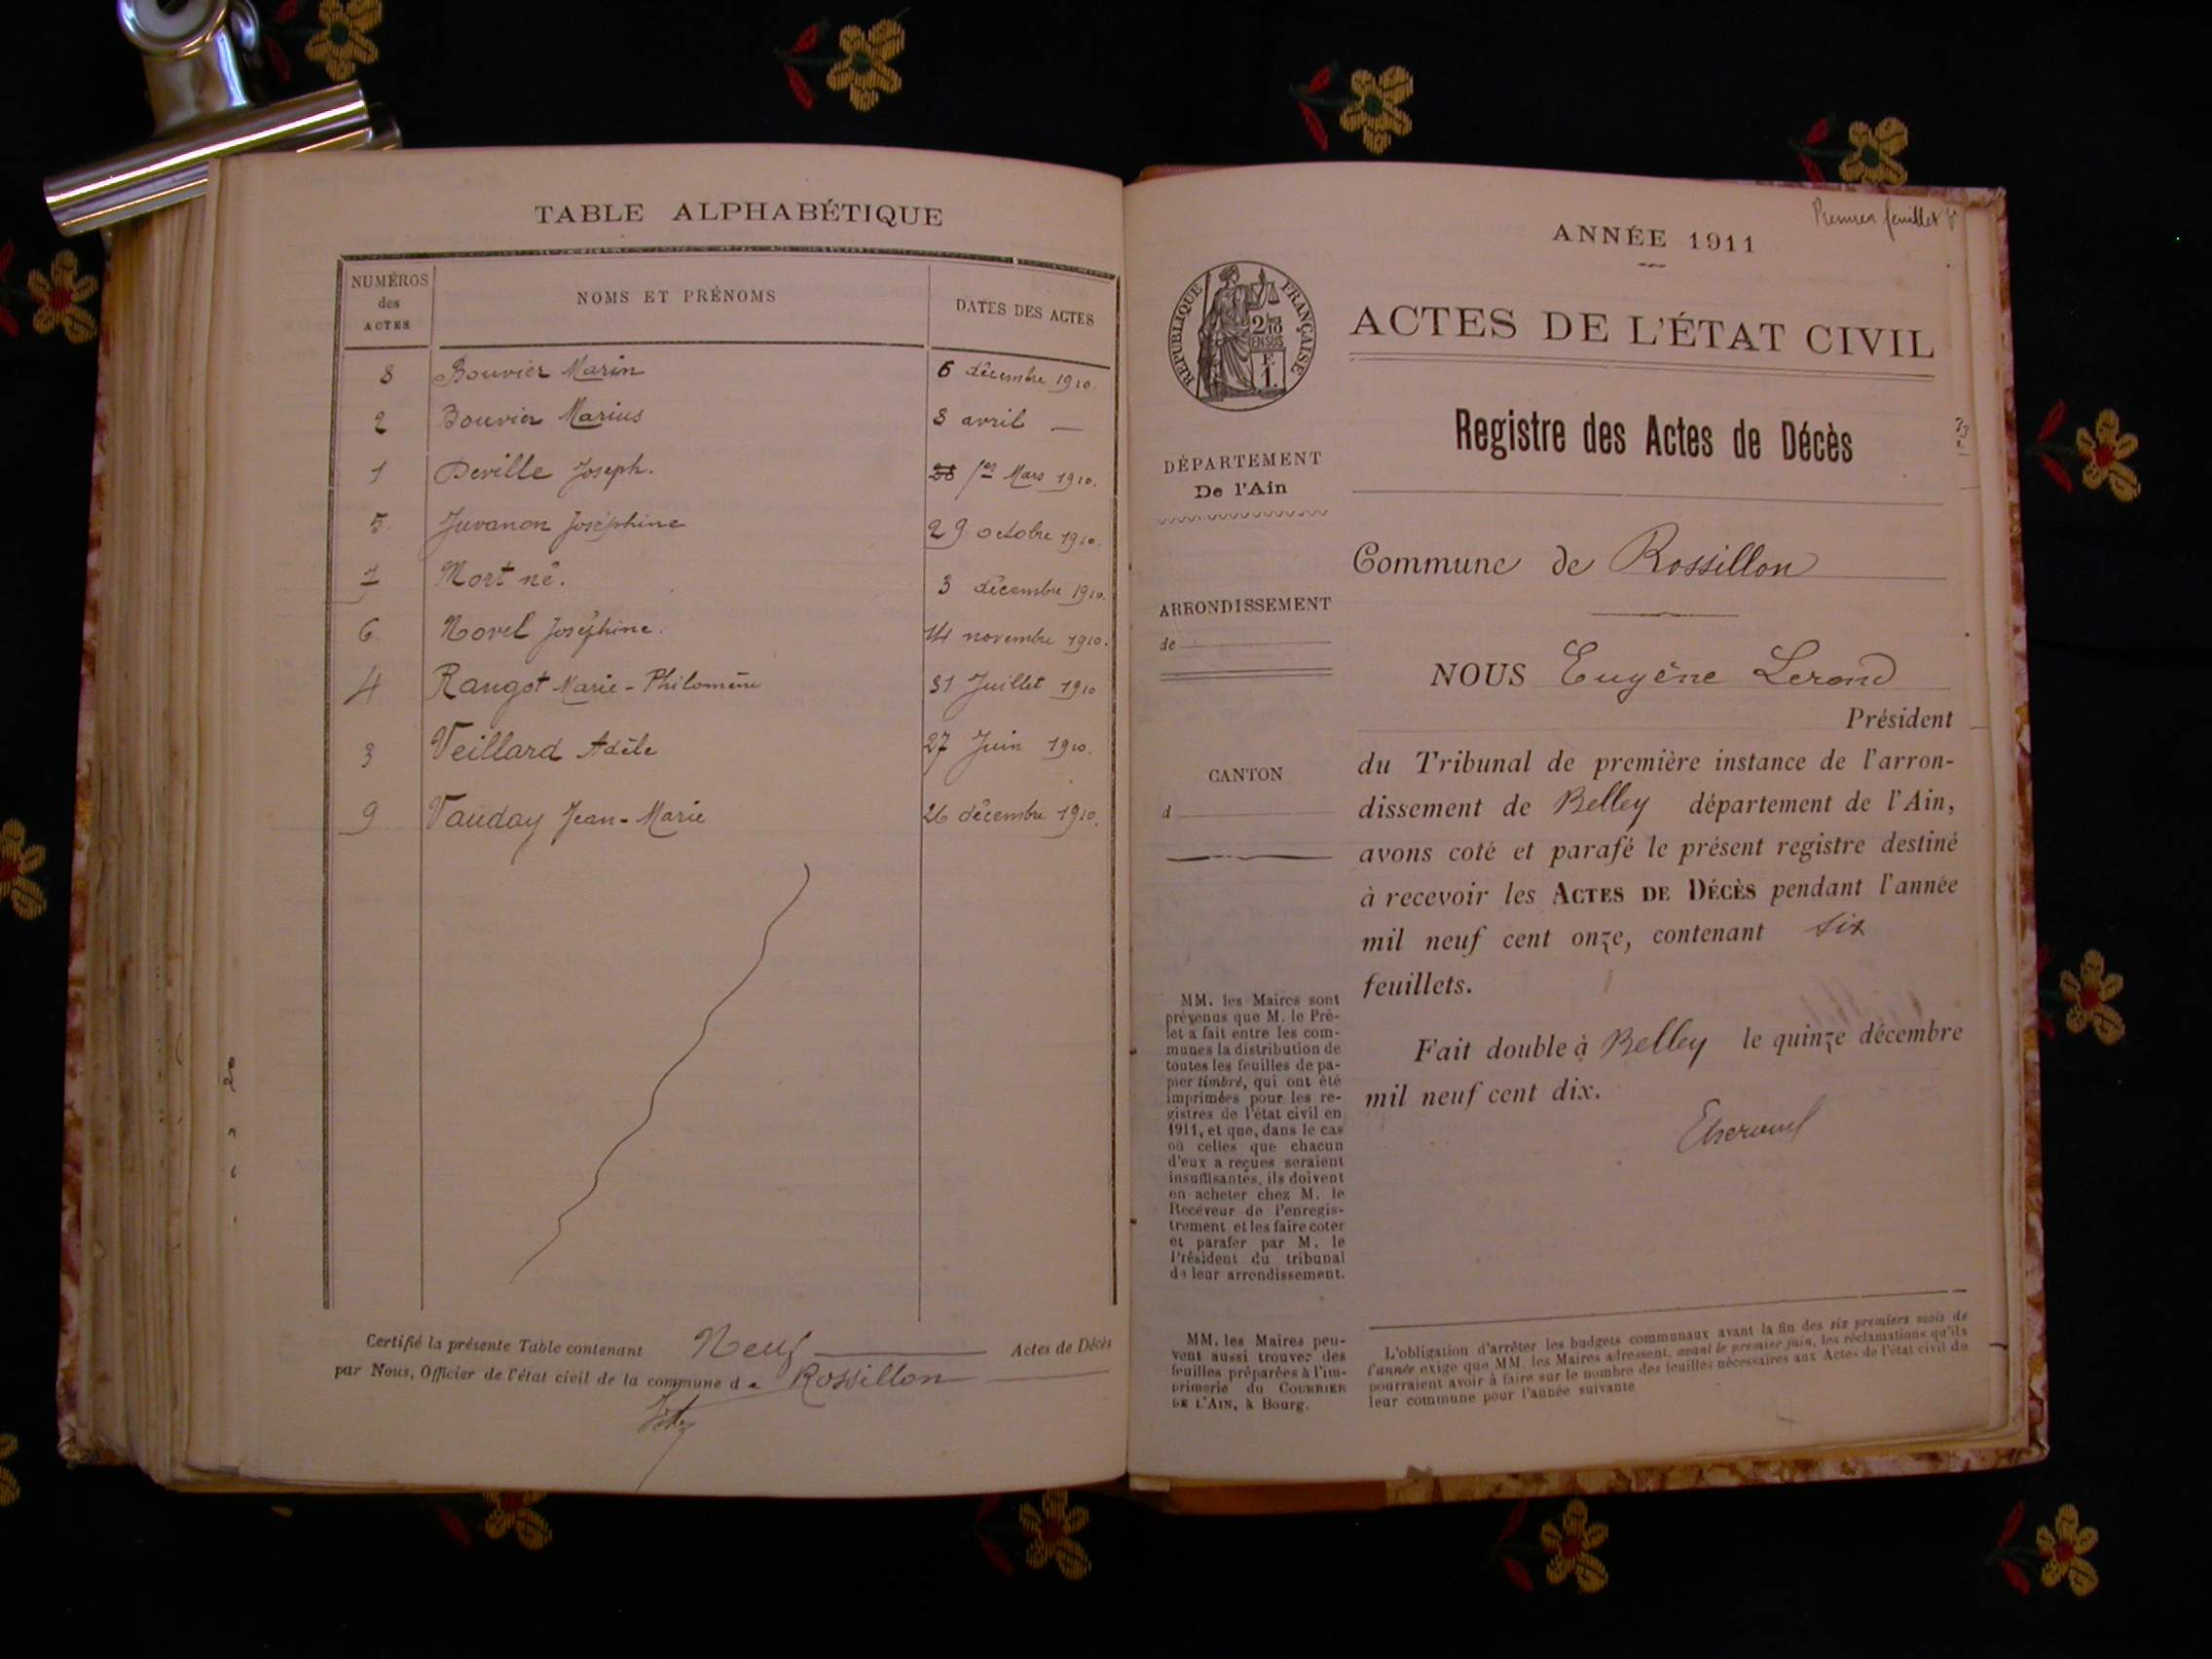 TABLE ALPHABÉTIQUE
NUMÉROS
des
ACTES
NOMS ET PRÉNOMS
DATES DES ACTES
8 Bouvier Marin 6 décembre 1910.
2 Bouvier Marius 8 avril —
1 Deville Joseph. 28 1er Mars 1910.
5. Juvanon Joséphine 29 octobre 1910.
7 Mort né. 3 décembre 1910.
6 Morel Joséphine. 14 novembre 1910.
4 Rangot Marie-Philomène 31 Juillet 1910
3 Veillard Adèle 27 Juin 1910.
9 Vauday Jean-Marie 26 décembre 1910.
Certifié la présente Table contenant Neuf Actes de Décès
par Nous, Officier de l'état civil de la commune de Rossillon
Premier feuillet
ANNÉE 1911
RÉPUBLIQUE FRANÇAISE
ACTES DE L'ÉTAT CIVIL
Registre des Actes de Décès
DÉPARTEMENT
De l'Ain
Commune de Rossillon
ARRONDISSEMENT
de
NOUS Eugène Lerond
Président
du Tribunal de première instance de l'arron-
dissement de Belley département de l'Ain,
avons coté et parafé le présent registre destiné
à recevoir les ACTES DE DÉCÈS pendant l'année
mil neuf cent onze, contenant six
feuillets.
Fait double à Belley le quinze décembre
mil neuf cent dix.
CANTON
d
MM. les Maires sont
prévenus que M. le Pré-
fet a fait entre les com-
munes la distribution de
toutes les feuilles de pa-
pier timbré, qui ont été
imprimées pour les re-
gistres de l'état civil en
1911, et que, dans le cas
où celles que chacun
d'eux a reçues seraient
insuffisantes, ils doivent
en acheter chez M. le
Receveur de l'enregis-
trement et les faire coter
et parafer par M. le
Président du tribunal
de leur arrondissement.
MM. les Maires peu-
vent aussi trouver des
feuilles préparées à l'im-
primerie du COURRIER
DE L'AIN, à Bourg.
L'obligation d'arrêter les budgets communaux avant la fin des six premiers mois de
l'année exige que MM. les Maires adressent, avant le premier juin, les réclamations qu'ils
pourraient avoir à faire sur le nombre des feuilles nécessaires aux Actes de l'état civil de
leur commune pour l'année suivante